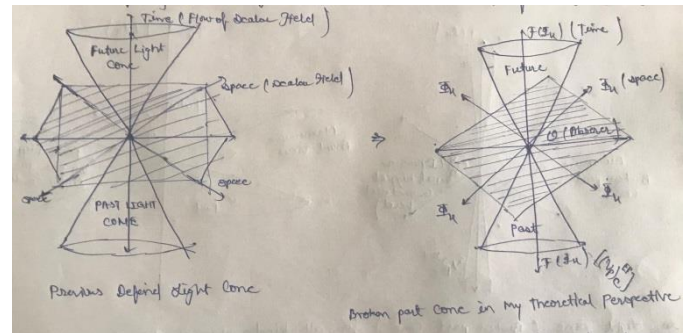 Time (Flow of Scalar Field)
Future Light
Cone
Space (Scalar Field)
space
space
PAST LIGHT
CONE
Previous Defined Light Cone
⇒
(Time)
Future
Φu (space)
Φu
O (Observer)
Φu
Φu
Past
Broken part Cone in my theoretical Perspective